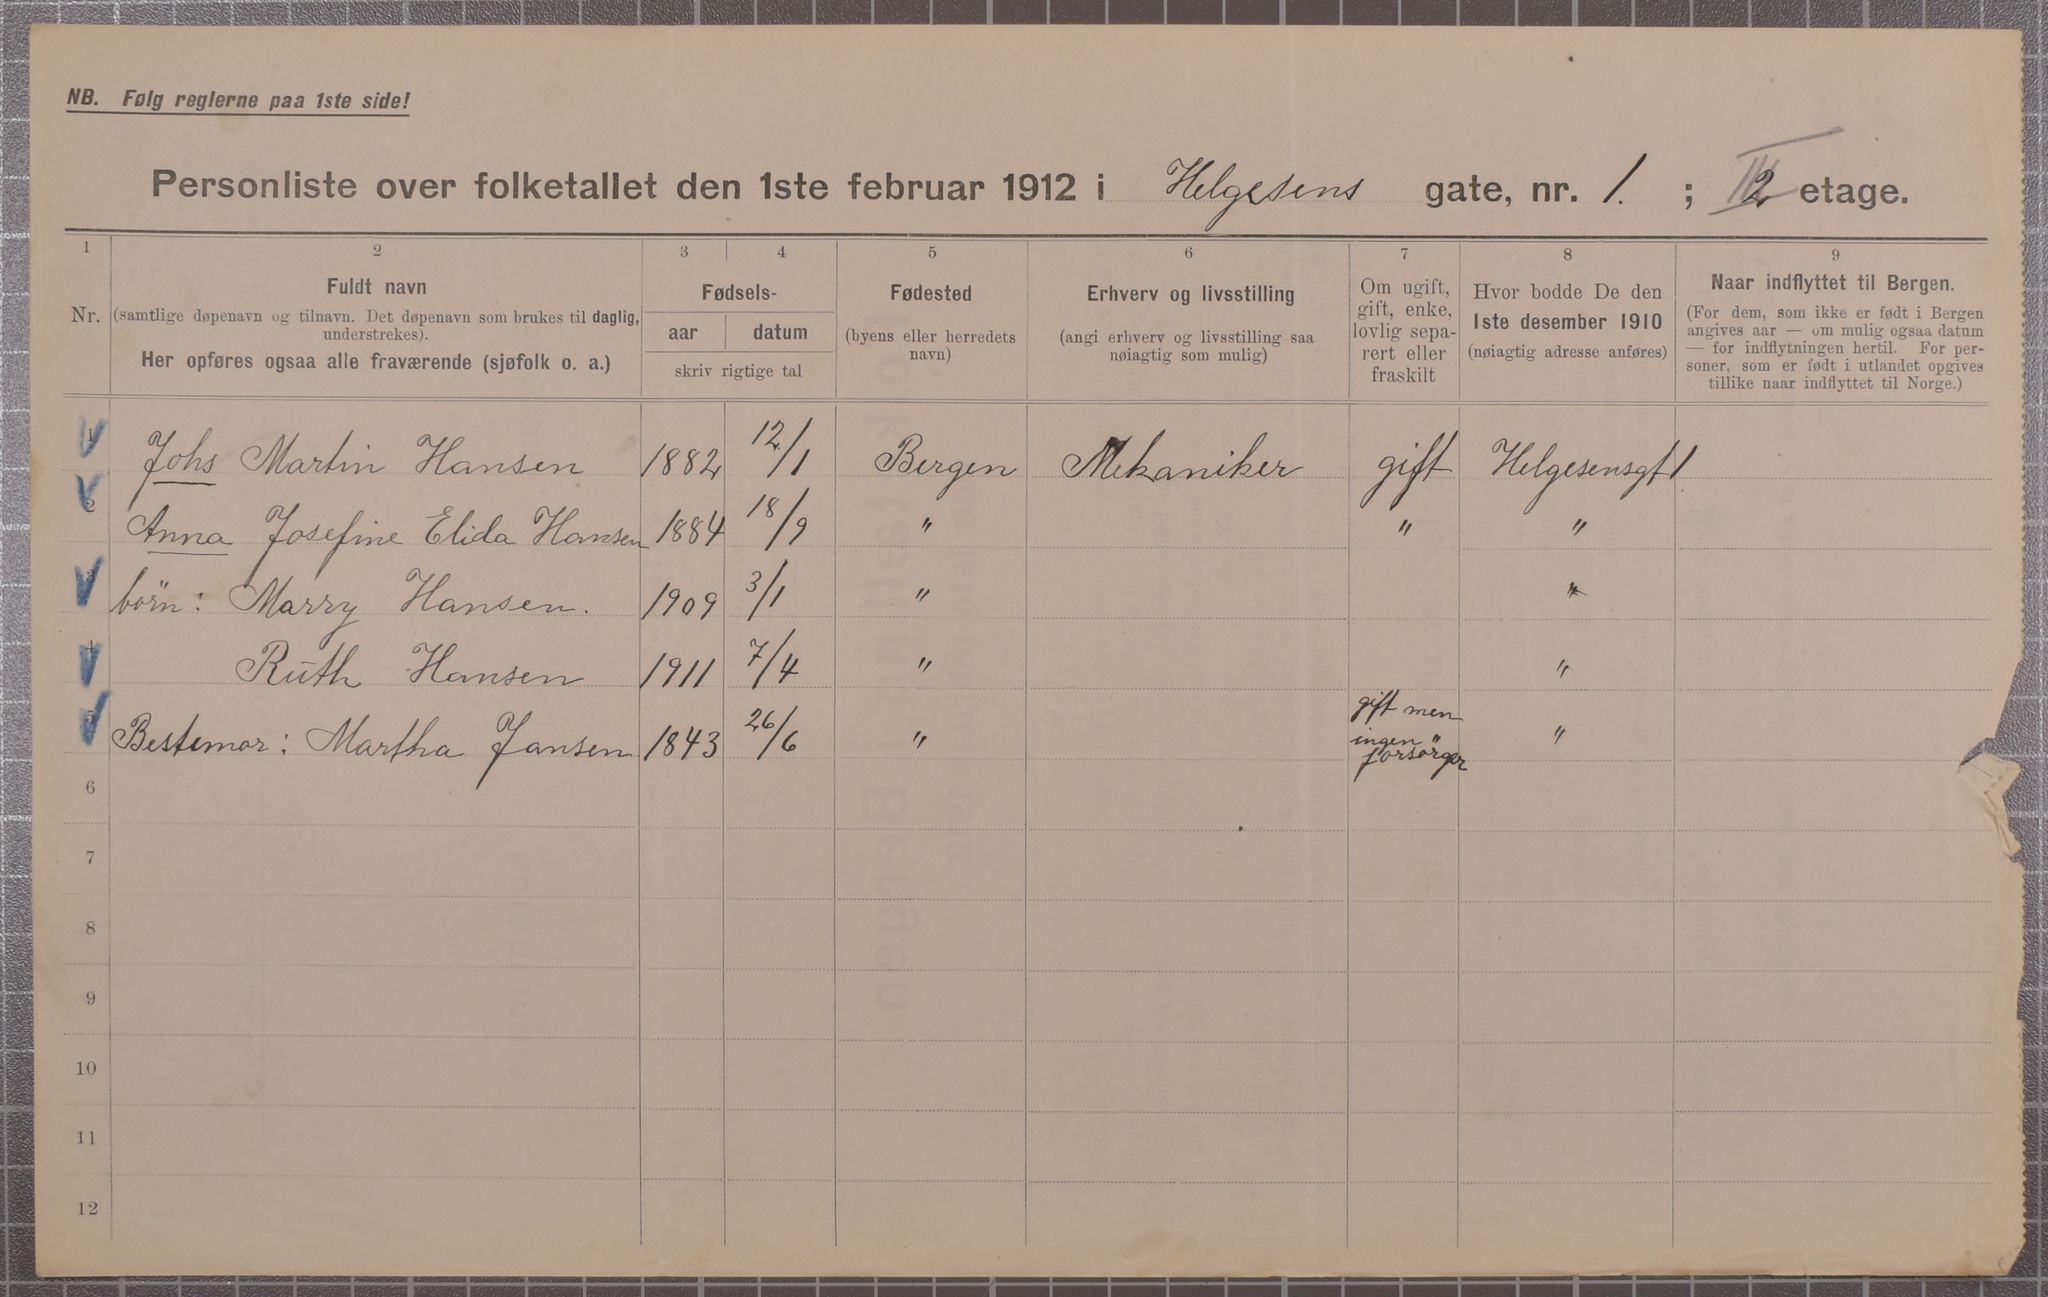 NB. Følg reglerne paa 1ste side!
Personliste over folketallet den 1ste februar 1912 i Helgesens gate, nr. 1. ; 2 etage.
1 2 3 4 5 6 7 8 9
Nr.
Fuldt navn
(samtlige døpenavn og tilnavn. Det døpenavn som brukes til daglig, understrekes).
Her opføres ogsaa alle fraværende (sjøfolk o. a.)
Fødsels-
aar datum
skriv rigtige tal
Fødested
(byens eller herredets
navn)
Erhverv og livsstilling
(angi erhverv og livsstilling saa
nøiagtig som mulig)
Om ugift,
gift, enke,
lovlig sepa-
rert eller
fraskilt
Hvor bodde De den
1ste desember 1910
(nøiagtig adresse anføres)
Naar indflyttet til Bergen.
(For dem, som ikke er født i Bergen
angives aar — om mulig ogsaa datum
— for indflytningen hertil. For per-
soner, som er født i utlandet opgives
tillike naar indflyttet til Norge.)
1 Johs Martin Hansen 1882 12/1 Bergen Mekaniker gift Helgesensgt 1
2 Anna Josefine Elida Hansen 1884 18/9 " " "
3 börn: Marry Hansen. 1909 3/1 " "
4 Ruth Hansen 1911 7/4 " "
5 Bestemor: Martha Jansen 1843 26/6 " gift men ingen forsørger "
6
7
8
9
10
11
12